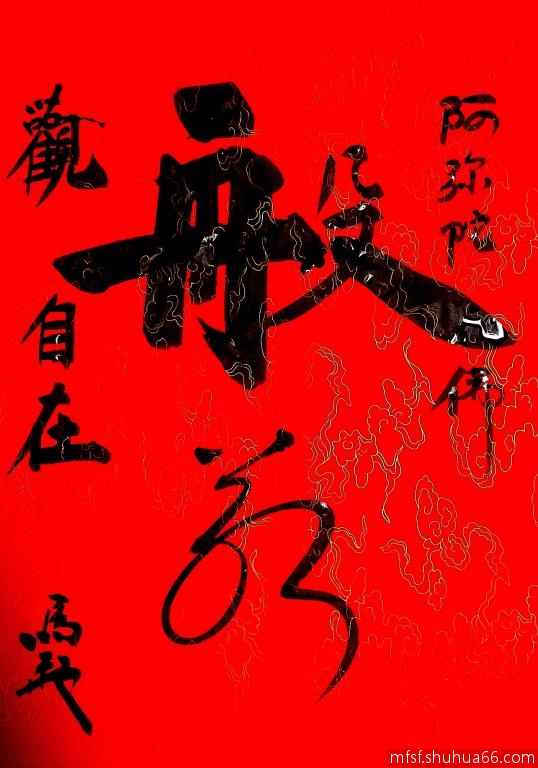 阿弥陀佛
般若
觀自在
馬
mfsf.shuhua66.com